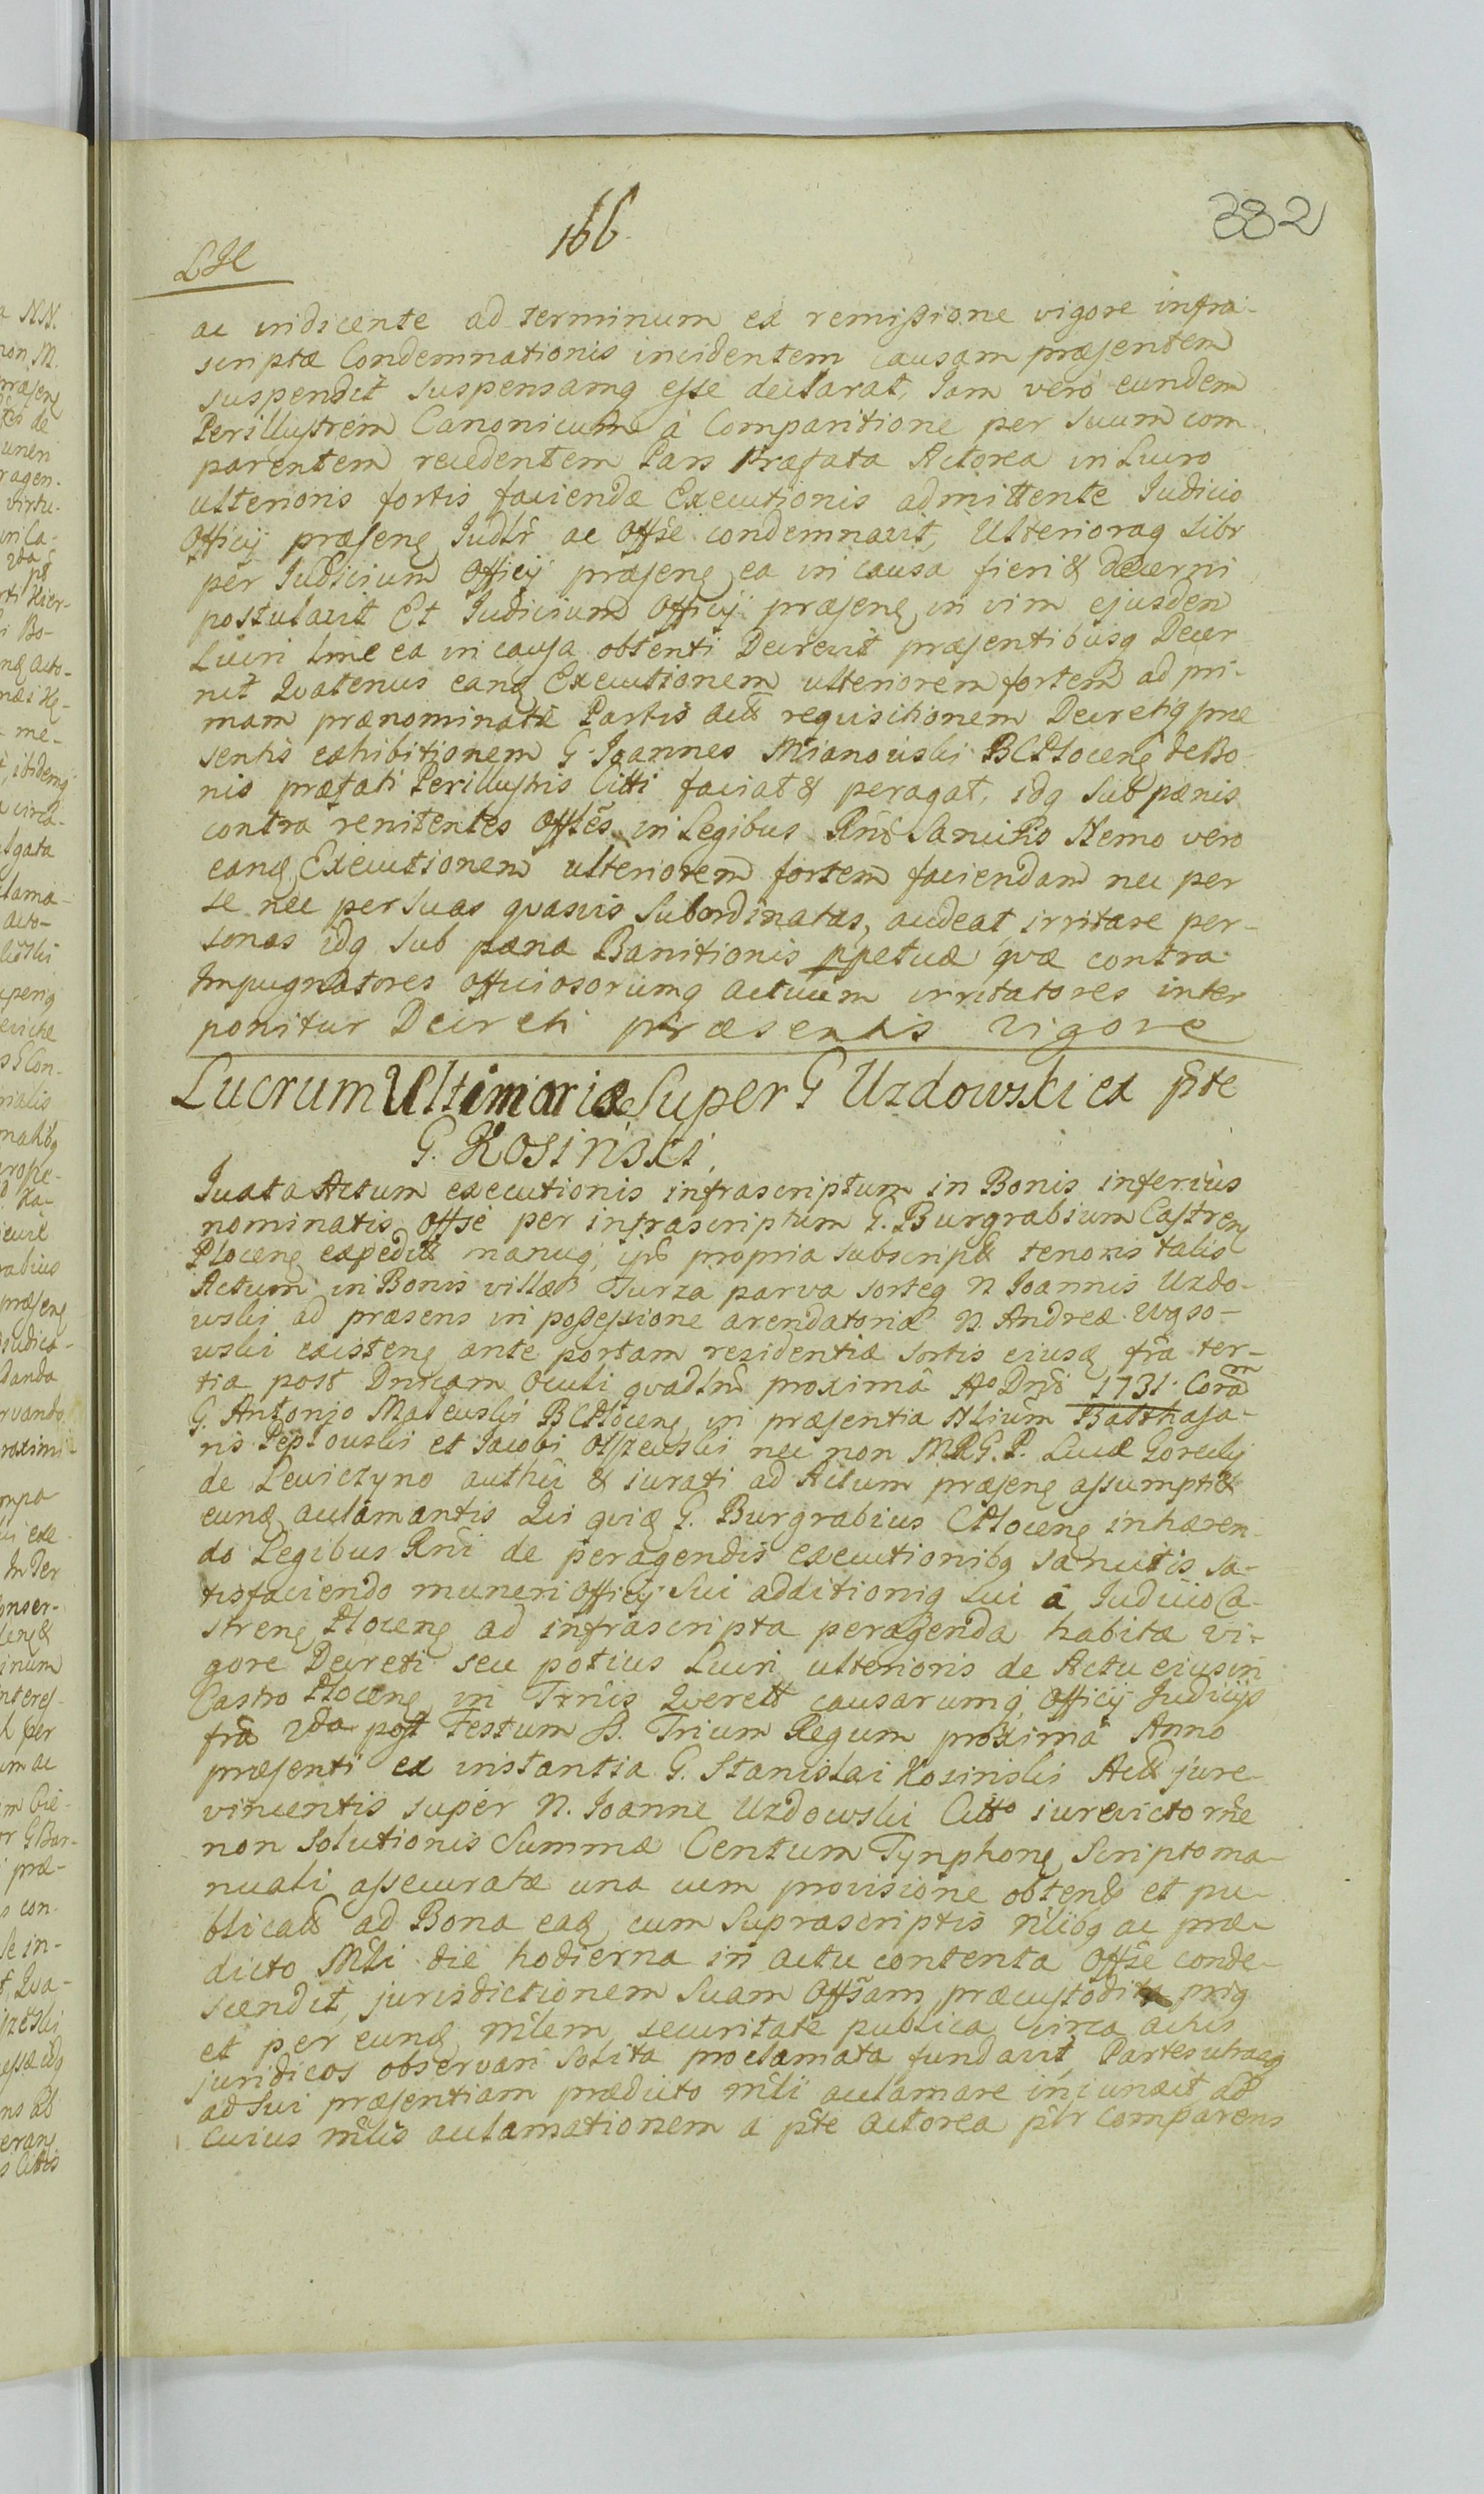 166
332
LH
ac indicente ad terminum ex remissione vigore infra-
scriptæ Condemnationis incidentem causam præsentem
suspendit suspensamq esse declarat, Iam vero eundem
Perillustrem Canonicum à Comparitione per suum com-
parentem recedentem Pars Præfata Actorea in Lucro
ulterioris fortis faciendæ Executionis admittente Iudicio
Officij præsenę Judlr ac Offse condemnavit, Ulterioraq sibi
per Iudicium Officij præsenę ea in causa fieri & decerni
postulavit Et Iudicium Officij præsenę in vim ejusdem
Lucri hinc ea in causa obtenti Decrevit præsentibusq Decer
nit Quatenus eanq Executionem ulteriorem fortem ad pri-
mam prænominatæ Partis act requisitionem Decretiq præ
sentis exhibitionem G. Ioannes Mianowski BCPlocenę de Bo-
nis præfati Perillustris Citti faciat & peragat, idq sub pænis
contra renitentes Offles in Legibus Rni Sancitis Nemo vero
eanq Executionem ulteriorem fortem faciendam nec per
se nec per suas quasvis subordinatas, audeat irritare per-
sonas idq sub pæna Banitionis ppetuæ quæ contra
Impugnatores officiosorumq actuum irritatores inter
ponitur Decreti præsentis vigore
Lucrum Ultimariæ Super G Uzdowski ex pte
G. Kosinski,
Iuxta Actum executionis infrascriptum in Bonis inferius
nominatis offse per infrascriptum G. Burgrabium Castrenę
Plocenę expedit manuq, ips propria subscript tenoris talis
Actum in Bonis villæ Turza parva sorteq N Ioannis Uzdo-
wski ad præsens in possessione arendatoria N. Andreæ Wyso-
wski existenę ante portam residentiæ sortis eiusq fra ter-
tia post Dnicam Oculi quadlm proximâ Ao Dni 1731. Coram
G. Antonio Mateuski BCPlocenę in præsentia Nlium Balthasa-
ris Peplowski et Iacobi Olszewski nec non MRG.P. Lucæ Gorecky
de Lewiczyno authci & iurati ad Actum præsenę assumpti &
eunq aclamantis Qui quiq G. Burgrabius CPlocenę inhæren-
do Legibus Rni de peragendis executionibq sancitis sa-
tisfaciendo muneri officij sui additioniq sui à Iudicio Ca-
strenę Plocenę ad infrascripta peragenda habitæ vi-
gore Decreti seu potius Lucri ulterioris de Actu eius in
Castro Plocenę in Trnis Querell causarumq, Officij Judicijs
fra 2da post Festum S. Trium Regum proximâ Anno
præsenti ex instantia G. Stanislai Kosinski Act jure-
vincentis super N. Ioanne Uzdowski Citto iurevicto rne
non solutionis Summæ Centum Tynphonę Scripto ma-
nuali assecuratæ una cum provisione obtent et pu-
blicat ad Bona eaq cum suprascriptis nlibq ac præ-
dicto Mli die hodierna in actu contenta Offse conde-
scendit, jurisdictionem suam Offsam præcustodita priq
et per eunq mlem securitate publica circa actus
juridicos observari solita proclamata fundavit, Partes utrasq
ad sui præsentiam prædicto mli aclamare injunxit ad
cuius mlis aclamationem a pte actorea plr comparens